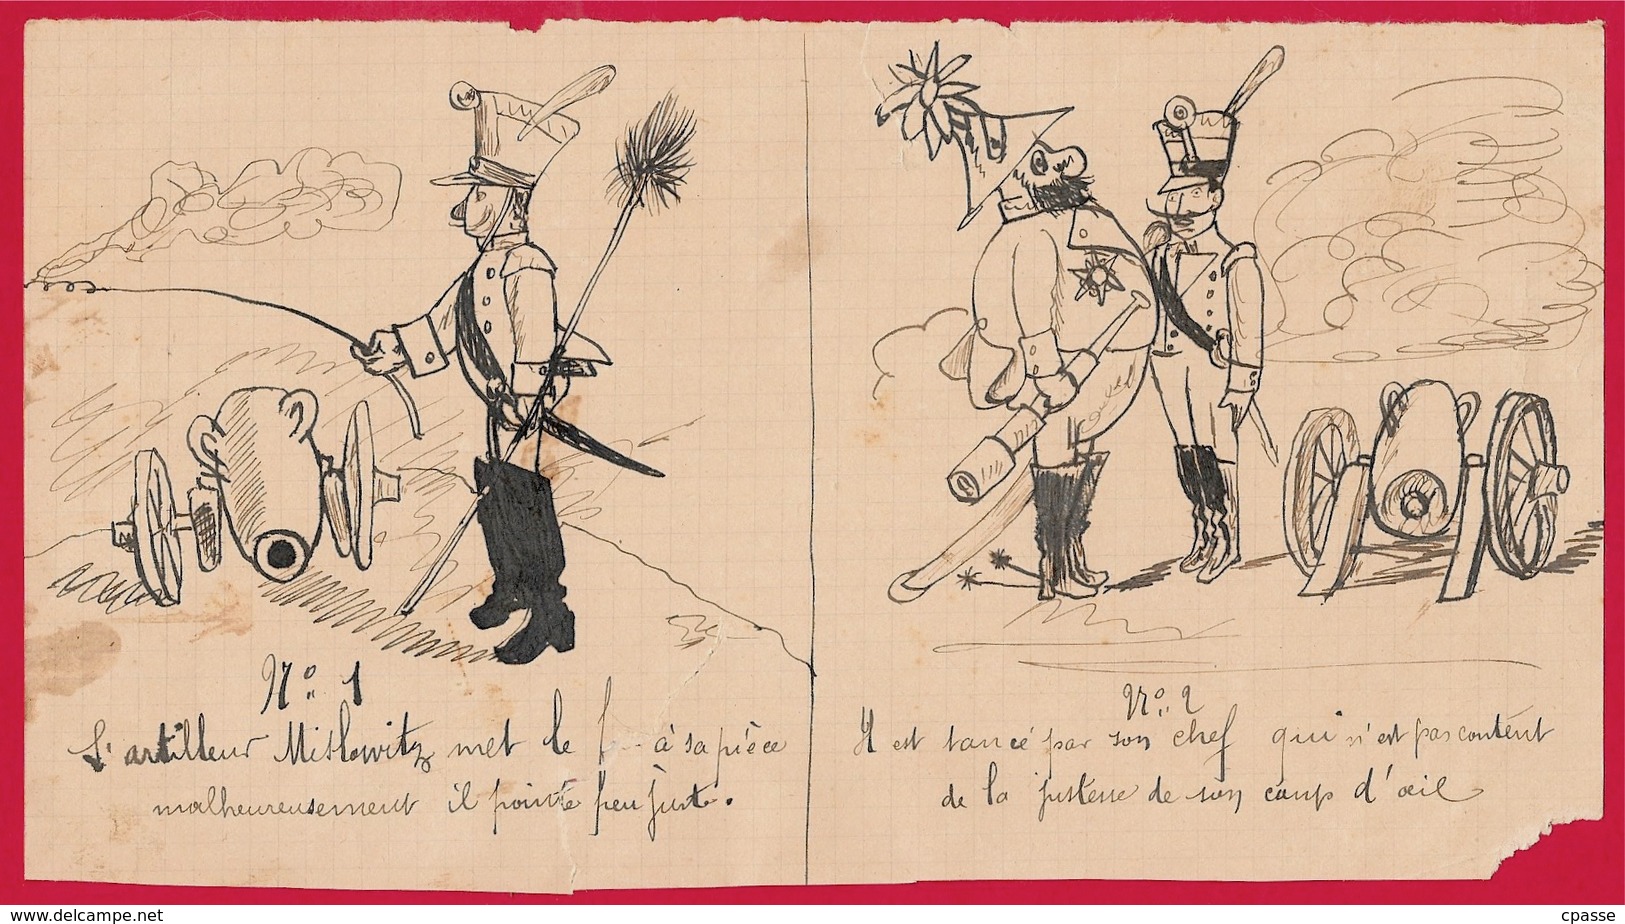 No. 1
L'artilleur Mislowitz met le f... à sa pièce
malheureusement il pointe peu juste.
No. 2
Il est tancé par son chef qui n'est pas content
de la justesse de son coup d'œil
www.delcampe.net
cpasse